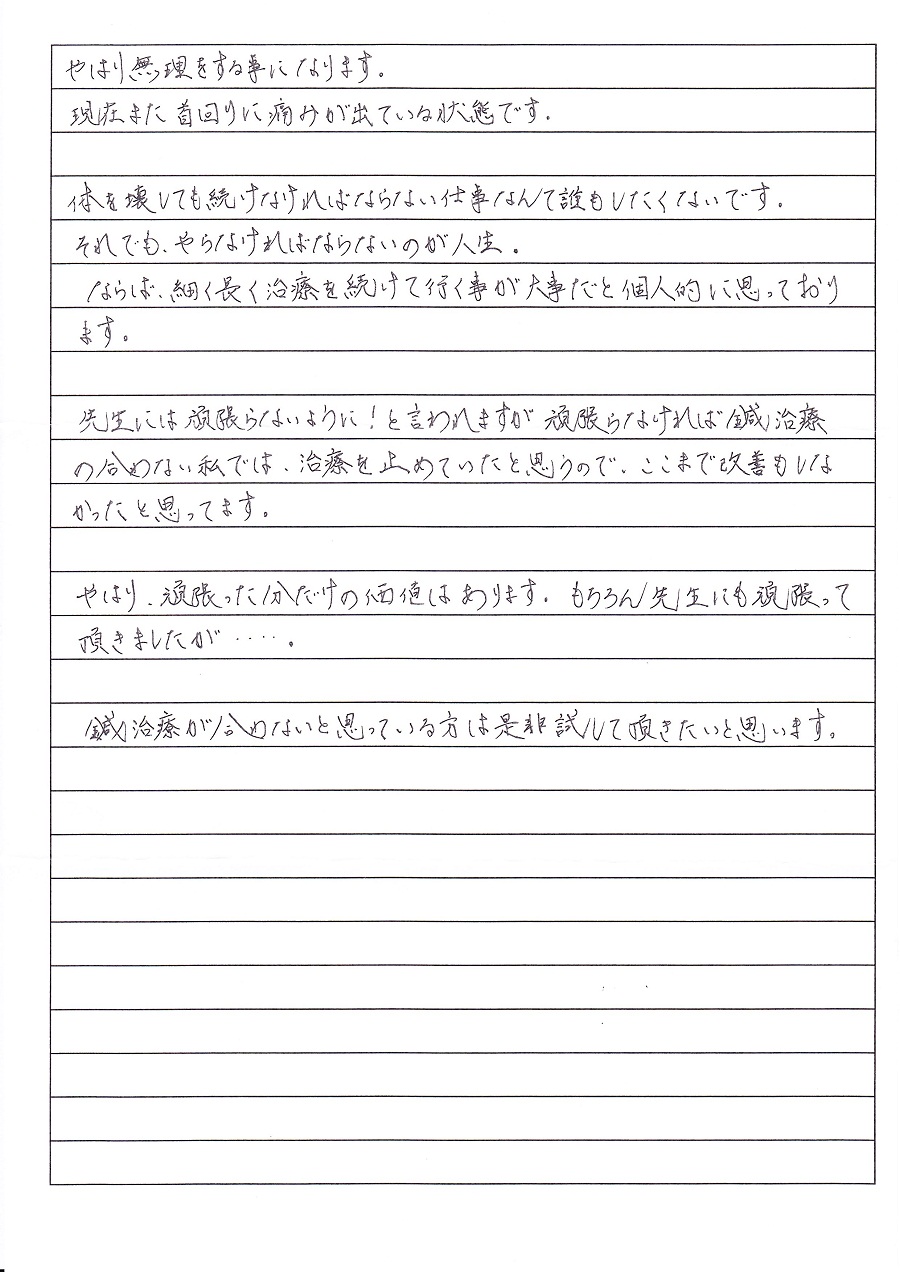 やはり無理をする事になります。
現在また首回りに痛みが出ている状態です。
体を壊しても続けなければならない仕事なんて誰もしたくないです。
それでも、やらなければならないのが人生。
ならば、細く長く治療を続けて行く事が大事だと個人的に思っており
ます。
先生には頑張らないように!と言われますが頑張らなければ鍼治療
の合わない私では、治療を止めていたと思うので、ここまで改善もしな
かったと思ってます。
やはり、頑張った分だけの価値はあります。もちろん先生にも頑張って
頂きましたが‥‥。
鍼治療が合わないと思っている方は是非試して頂きたいと思います。